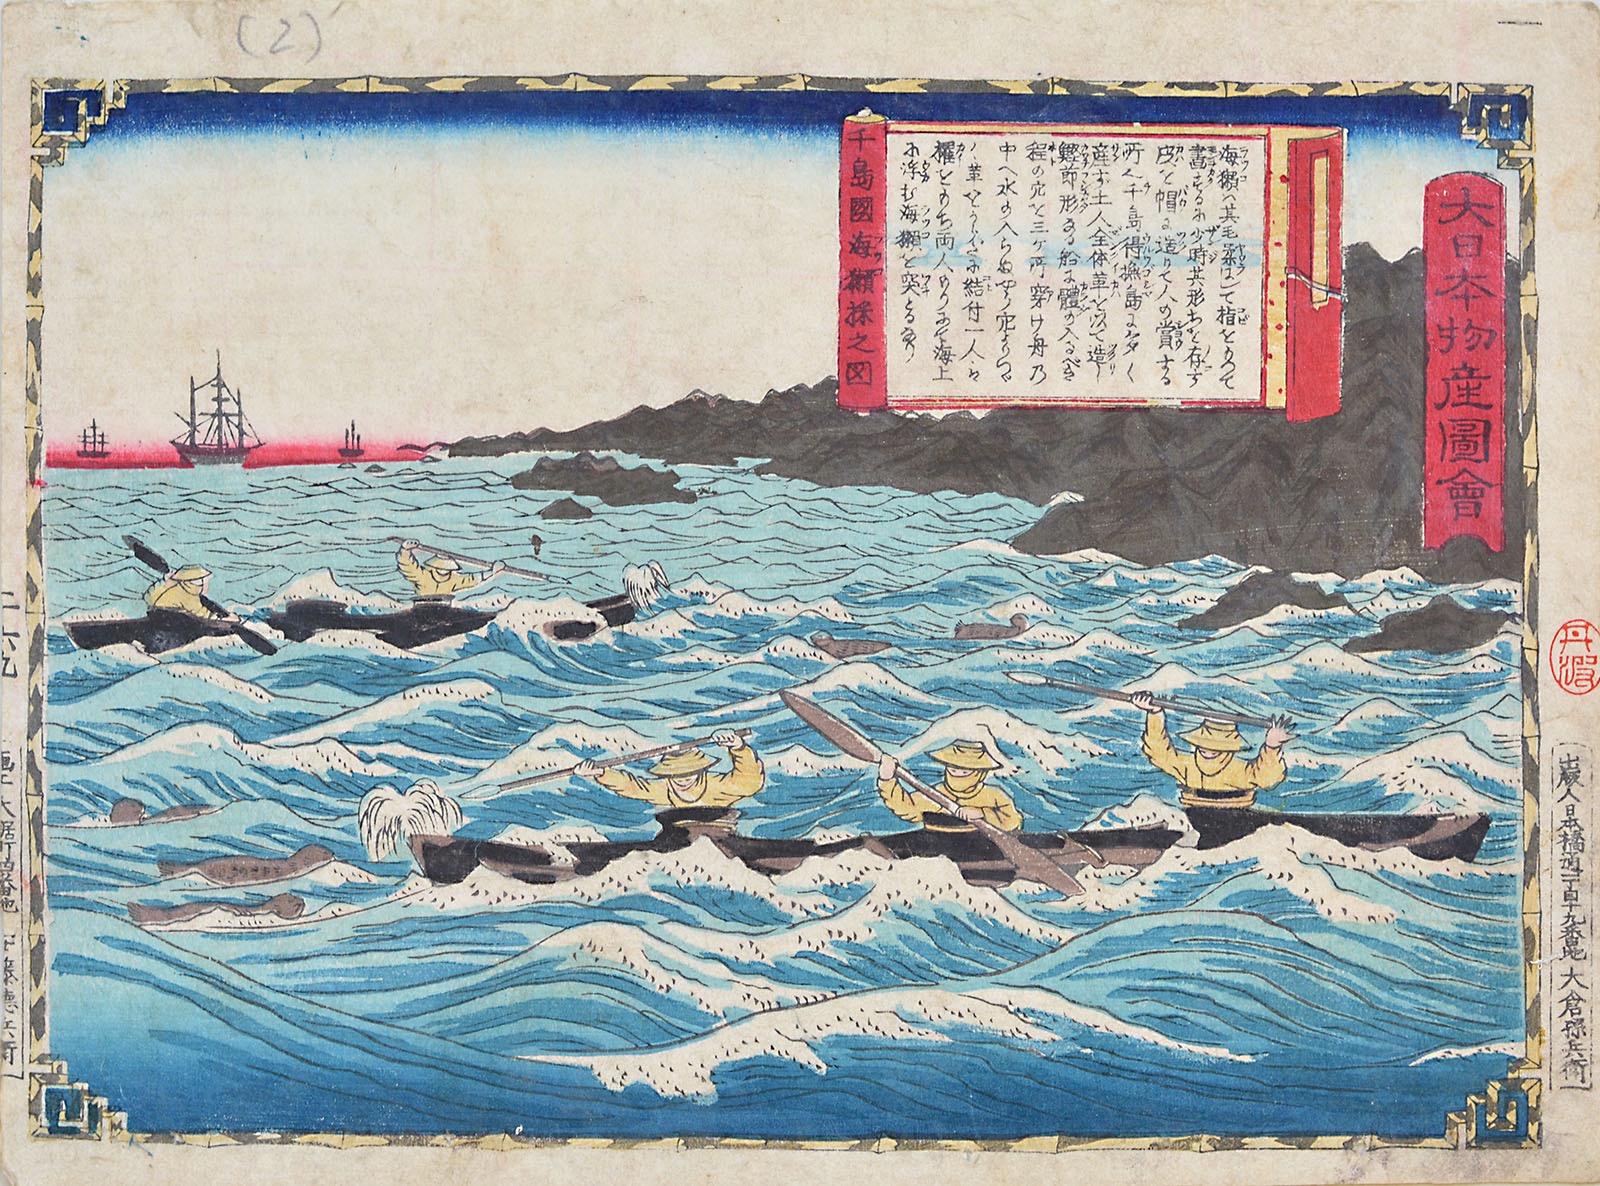 (2)
大日本物産圖會
千島國海獺採之図
海獺ハ其毛柔にして指をもつて
書するに少時其形ちを存す
皮を帽に造りて人の賞する
所也千島得撫島に多く
産す土人全体革を以て造し
鰹節形なる船に體の入るべき
程の穴を三ヶ所穿け舟乃
中へ水の入らぬやう穴よりつゞ
く革をからだに結付一人ハ
櫂をもち両人もりにて海上
に浮む海獺を突とるなり
丹波
出版人日本橋通一丁目十九番地 大倉孫兵衛
大鋸町四番地